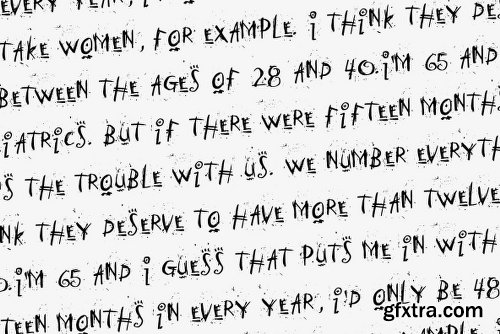 EVERY YEAR, I
TAKE WOMEN, FOR EXAMPLE. I THINK THEY DE
BETWEEN THE AGES OF 28 AND 40. I'M 65 AND
IATRICS. BUT IF THERE WERE FIFTEEN MONTH
S THE TROUBLE WITH US. WE NUMBER EVERYTH
NK THEY DESERVE TO HAVE MORE THAN TWELVE
0. I'M 65 AND I GUESS THAT PUTS ME IN WITH
TEEN MONTHS IN EVERY YEAR, I'D ONLY BE 48
gfxtra.com